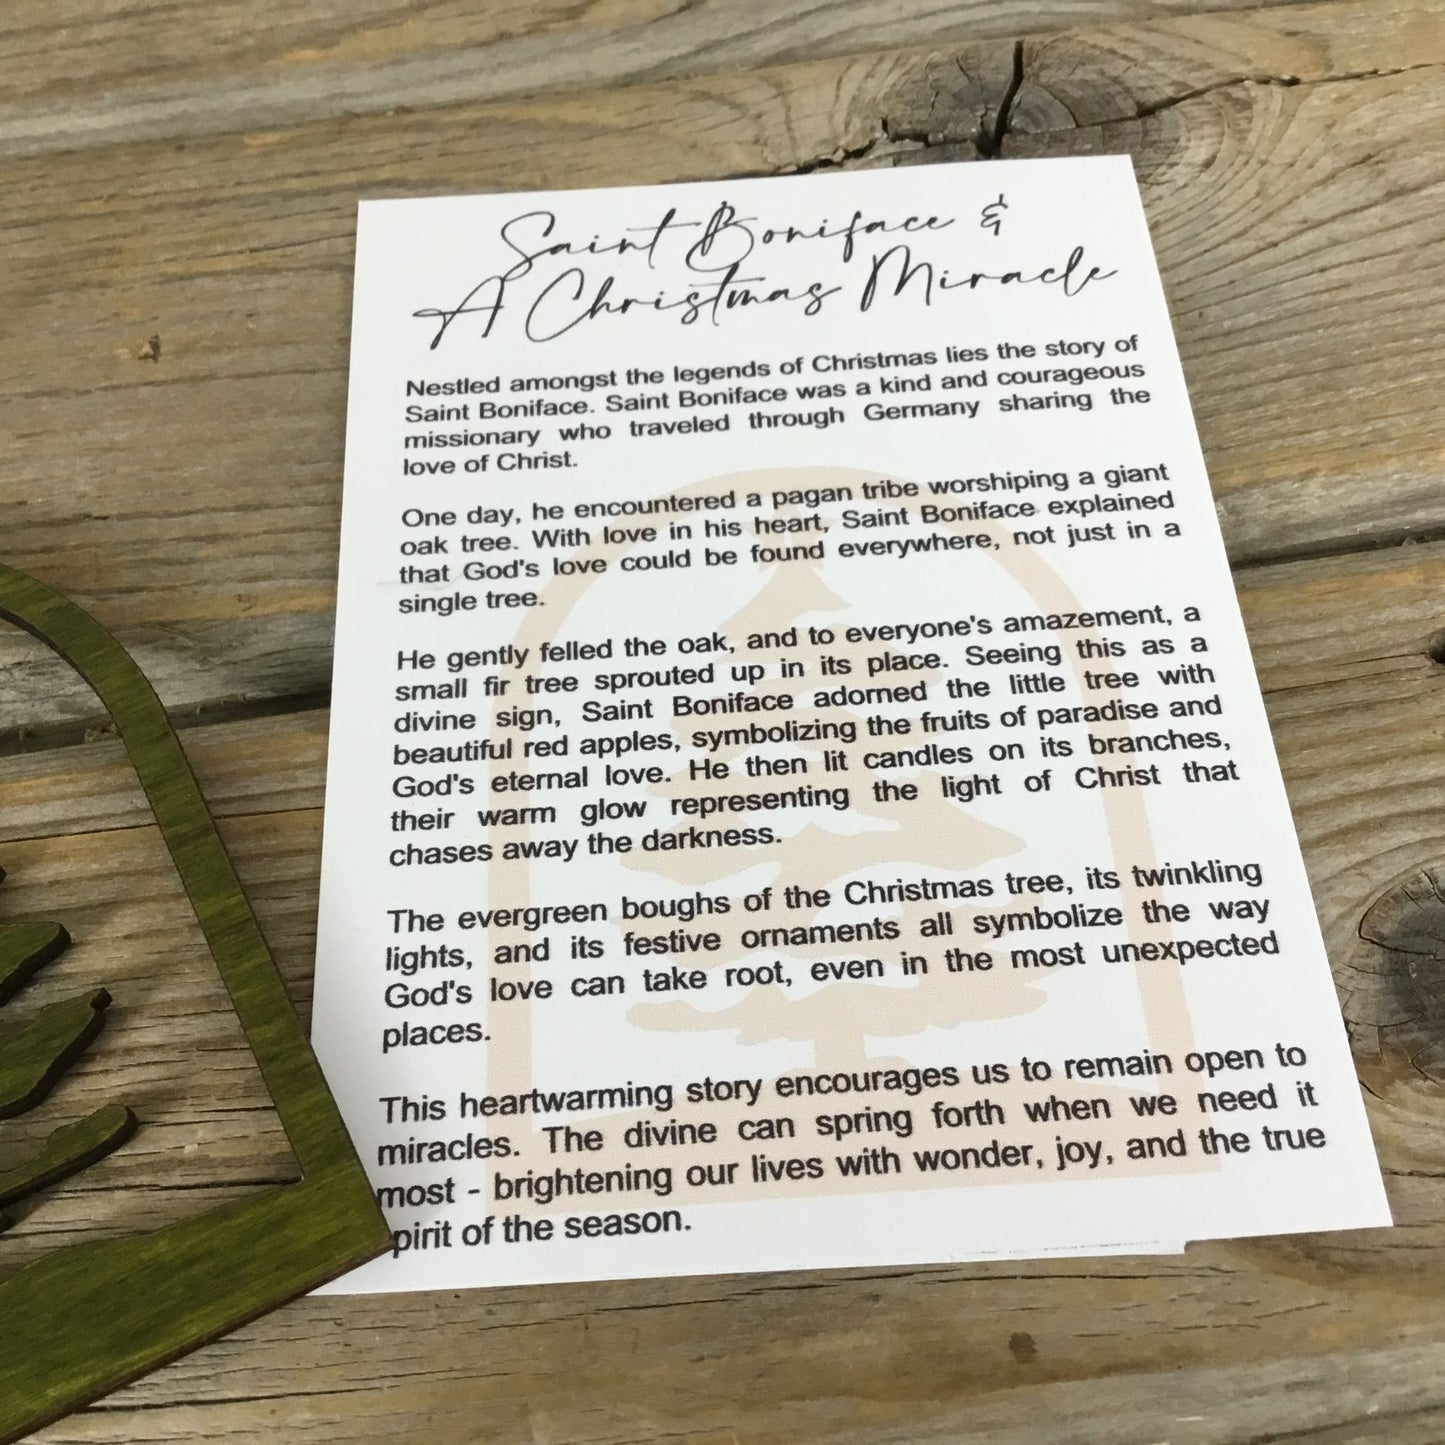 Saint Boniface &
A Christmas Miracle
Nestled amongst the legends of Christmas lies the story of
Saint Boniface. Saint Boniface was a kind and courageous
missionary who traveled through Germany sharing the
love of Christ.
One day, he encountered a pagan tribe worshiping a giant
oak tree. With love in his heart, Saint Boniface explained
that God's love could be found everywhere, not just in a
single tree.
He gently felled the oak, and to everyone's amazement, a
small fir tree sprouted up in its place. Seeing this as a
divine sign, Saint Boniface adorned the little tree with
beautiful red apples, symbolizing the fruits of paradise and
God's eternal love. He then lit candles on its branches,
their warm glow representing the light of Christ that
chases away the darkness.
The evergreen boughs of the Christmas tree, its twinkling
lights, and its festive ornaments all symbolize the way
God's love can take root, even in the most unexpected
places.
This heartwarming story encourages us to remain open to
miracles. The divine can spring forth when we need it
most - brightening our lives with wonder, joy, and the true
pirit of the season.